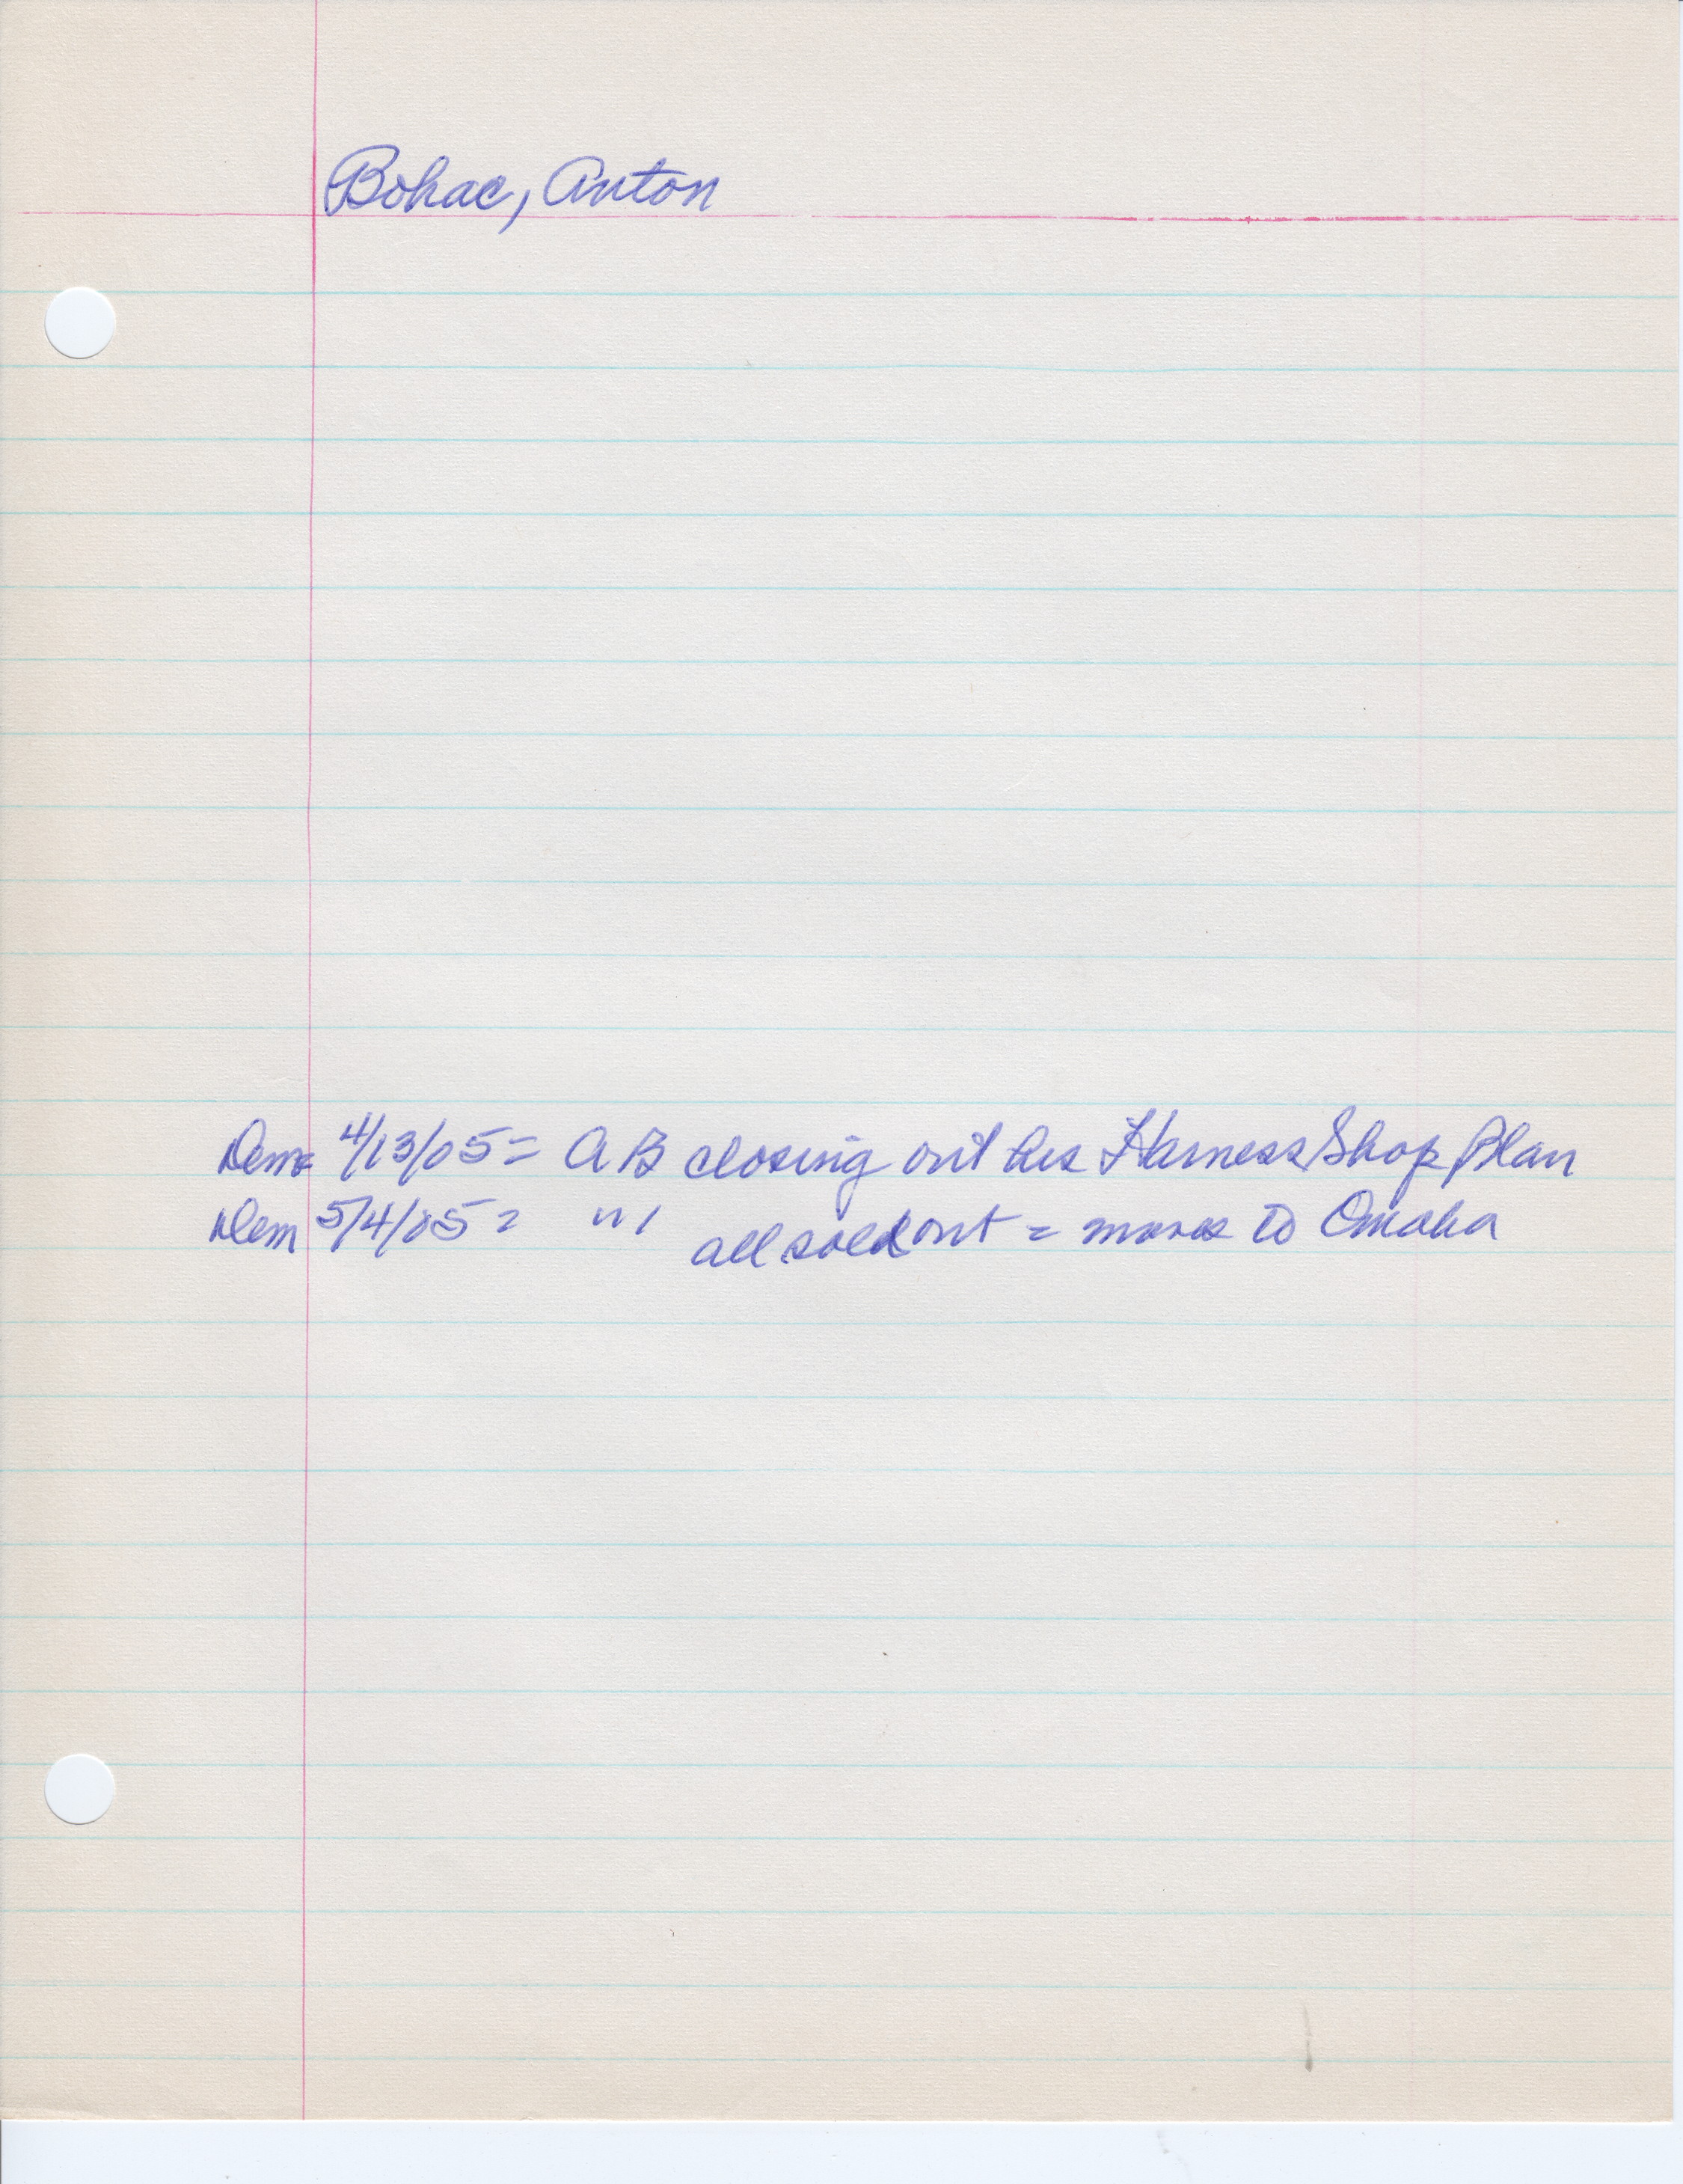 Bohac, Anton
Dem 4/13/05 = AB closing out his Harness Shop Plan
Dem 5/4/05 = " " all sold out = moves to Omaha